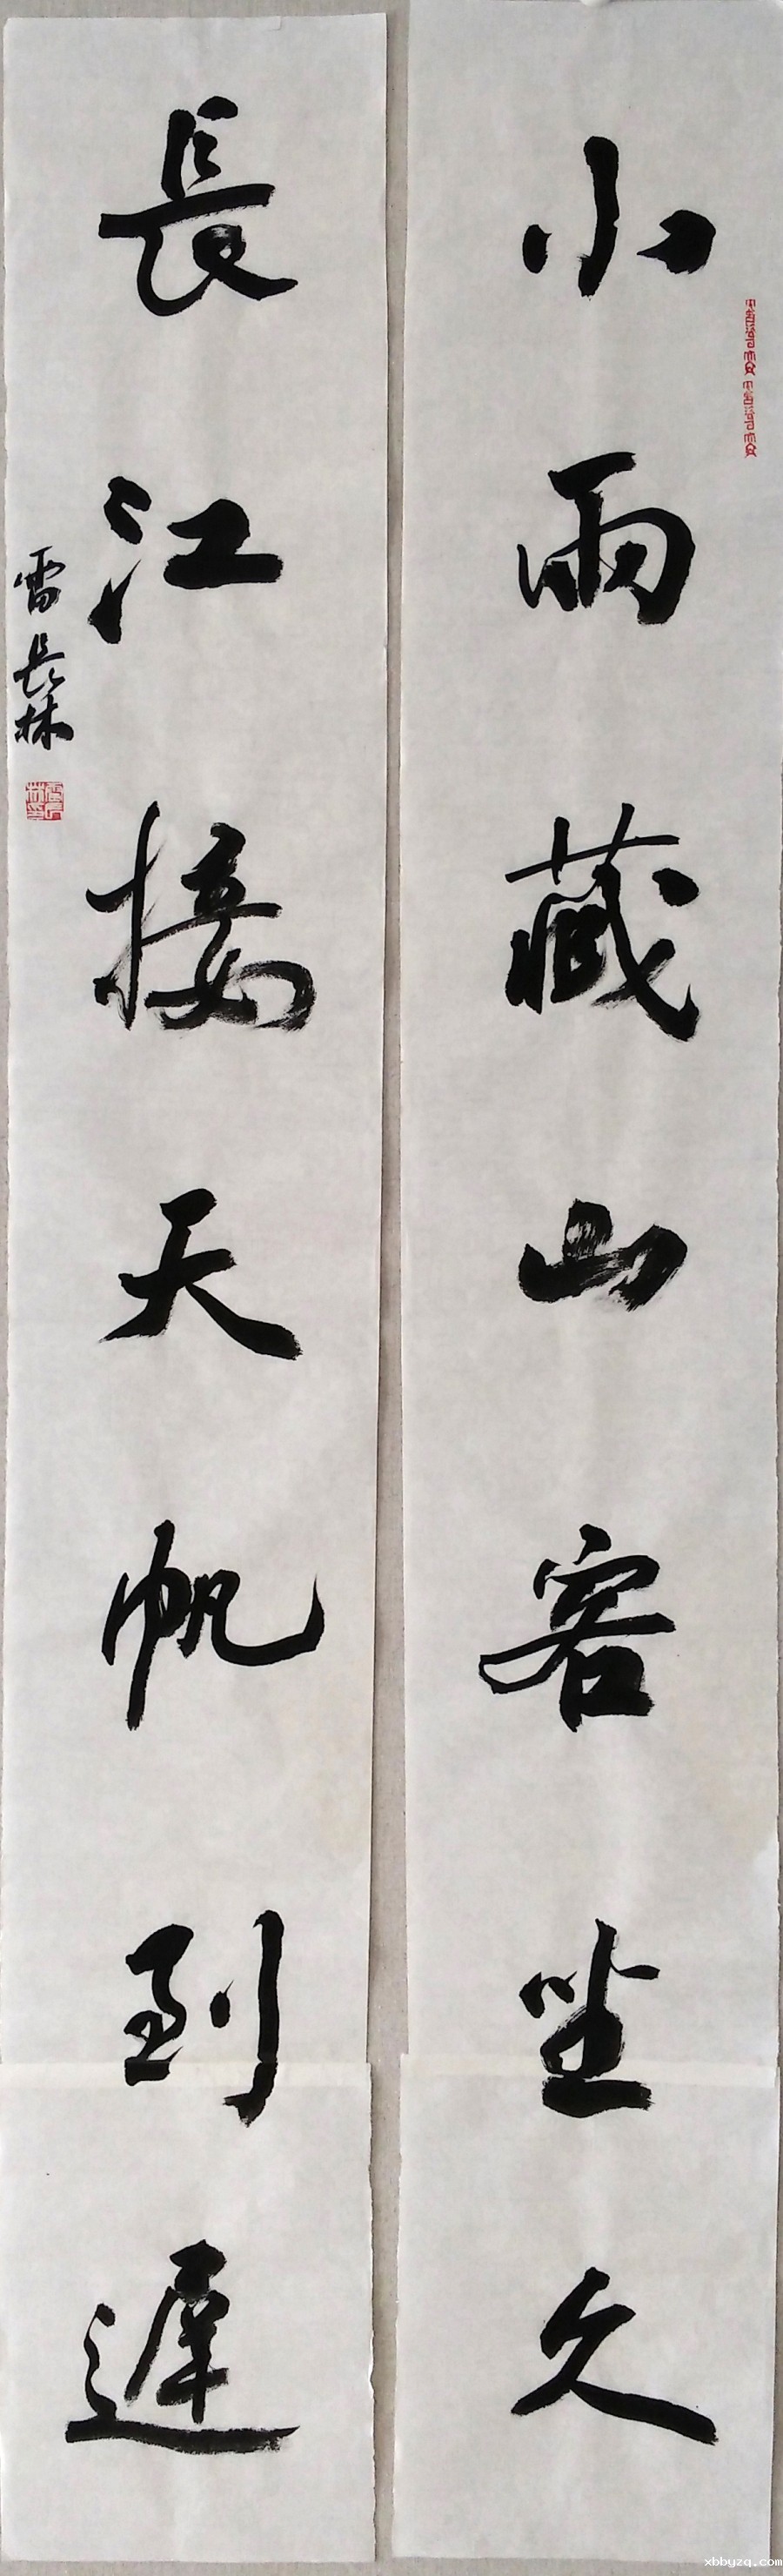 小雨藏山客坐久
長江接天帆到遲
雷長林
xbbyzq.com